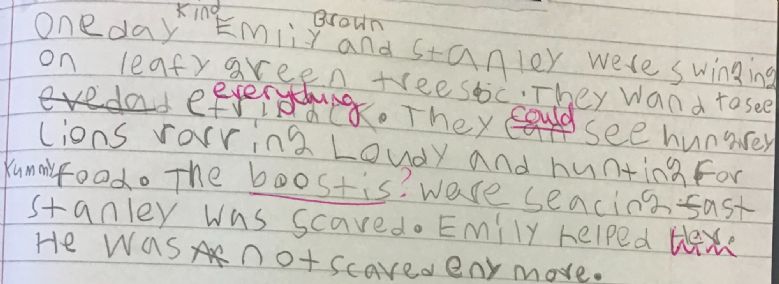 one day kind Emily Brown and Stanley were swinging
on leafy green treesbc. They wand to see
evedad efridack everything. They can could see hungrey
Lions rorring Loudy and hunting For
yummy food. The boostis? were seacing fast
Stanley was scared. Emily helped him
He was not scared eny more.